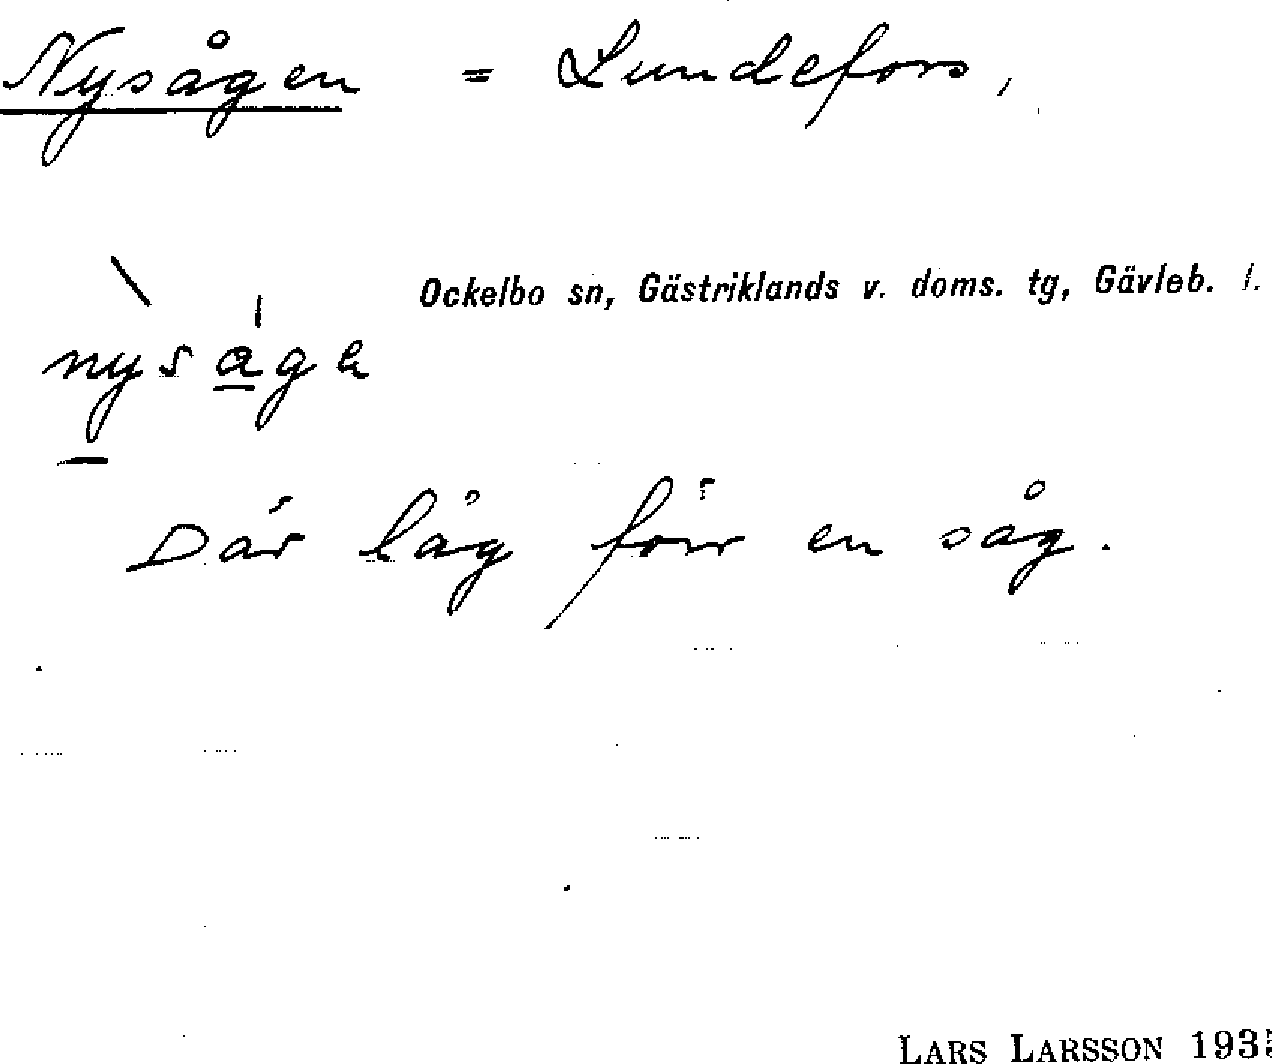 Nysågen = Lundefors,
Ockelbo sn, Gästriklands v. doms. tg, Gävleb. l.
nysaga
Där låg förr en såg.
LARS LARSSON 1935